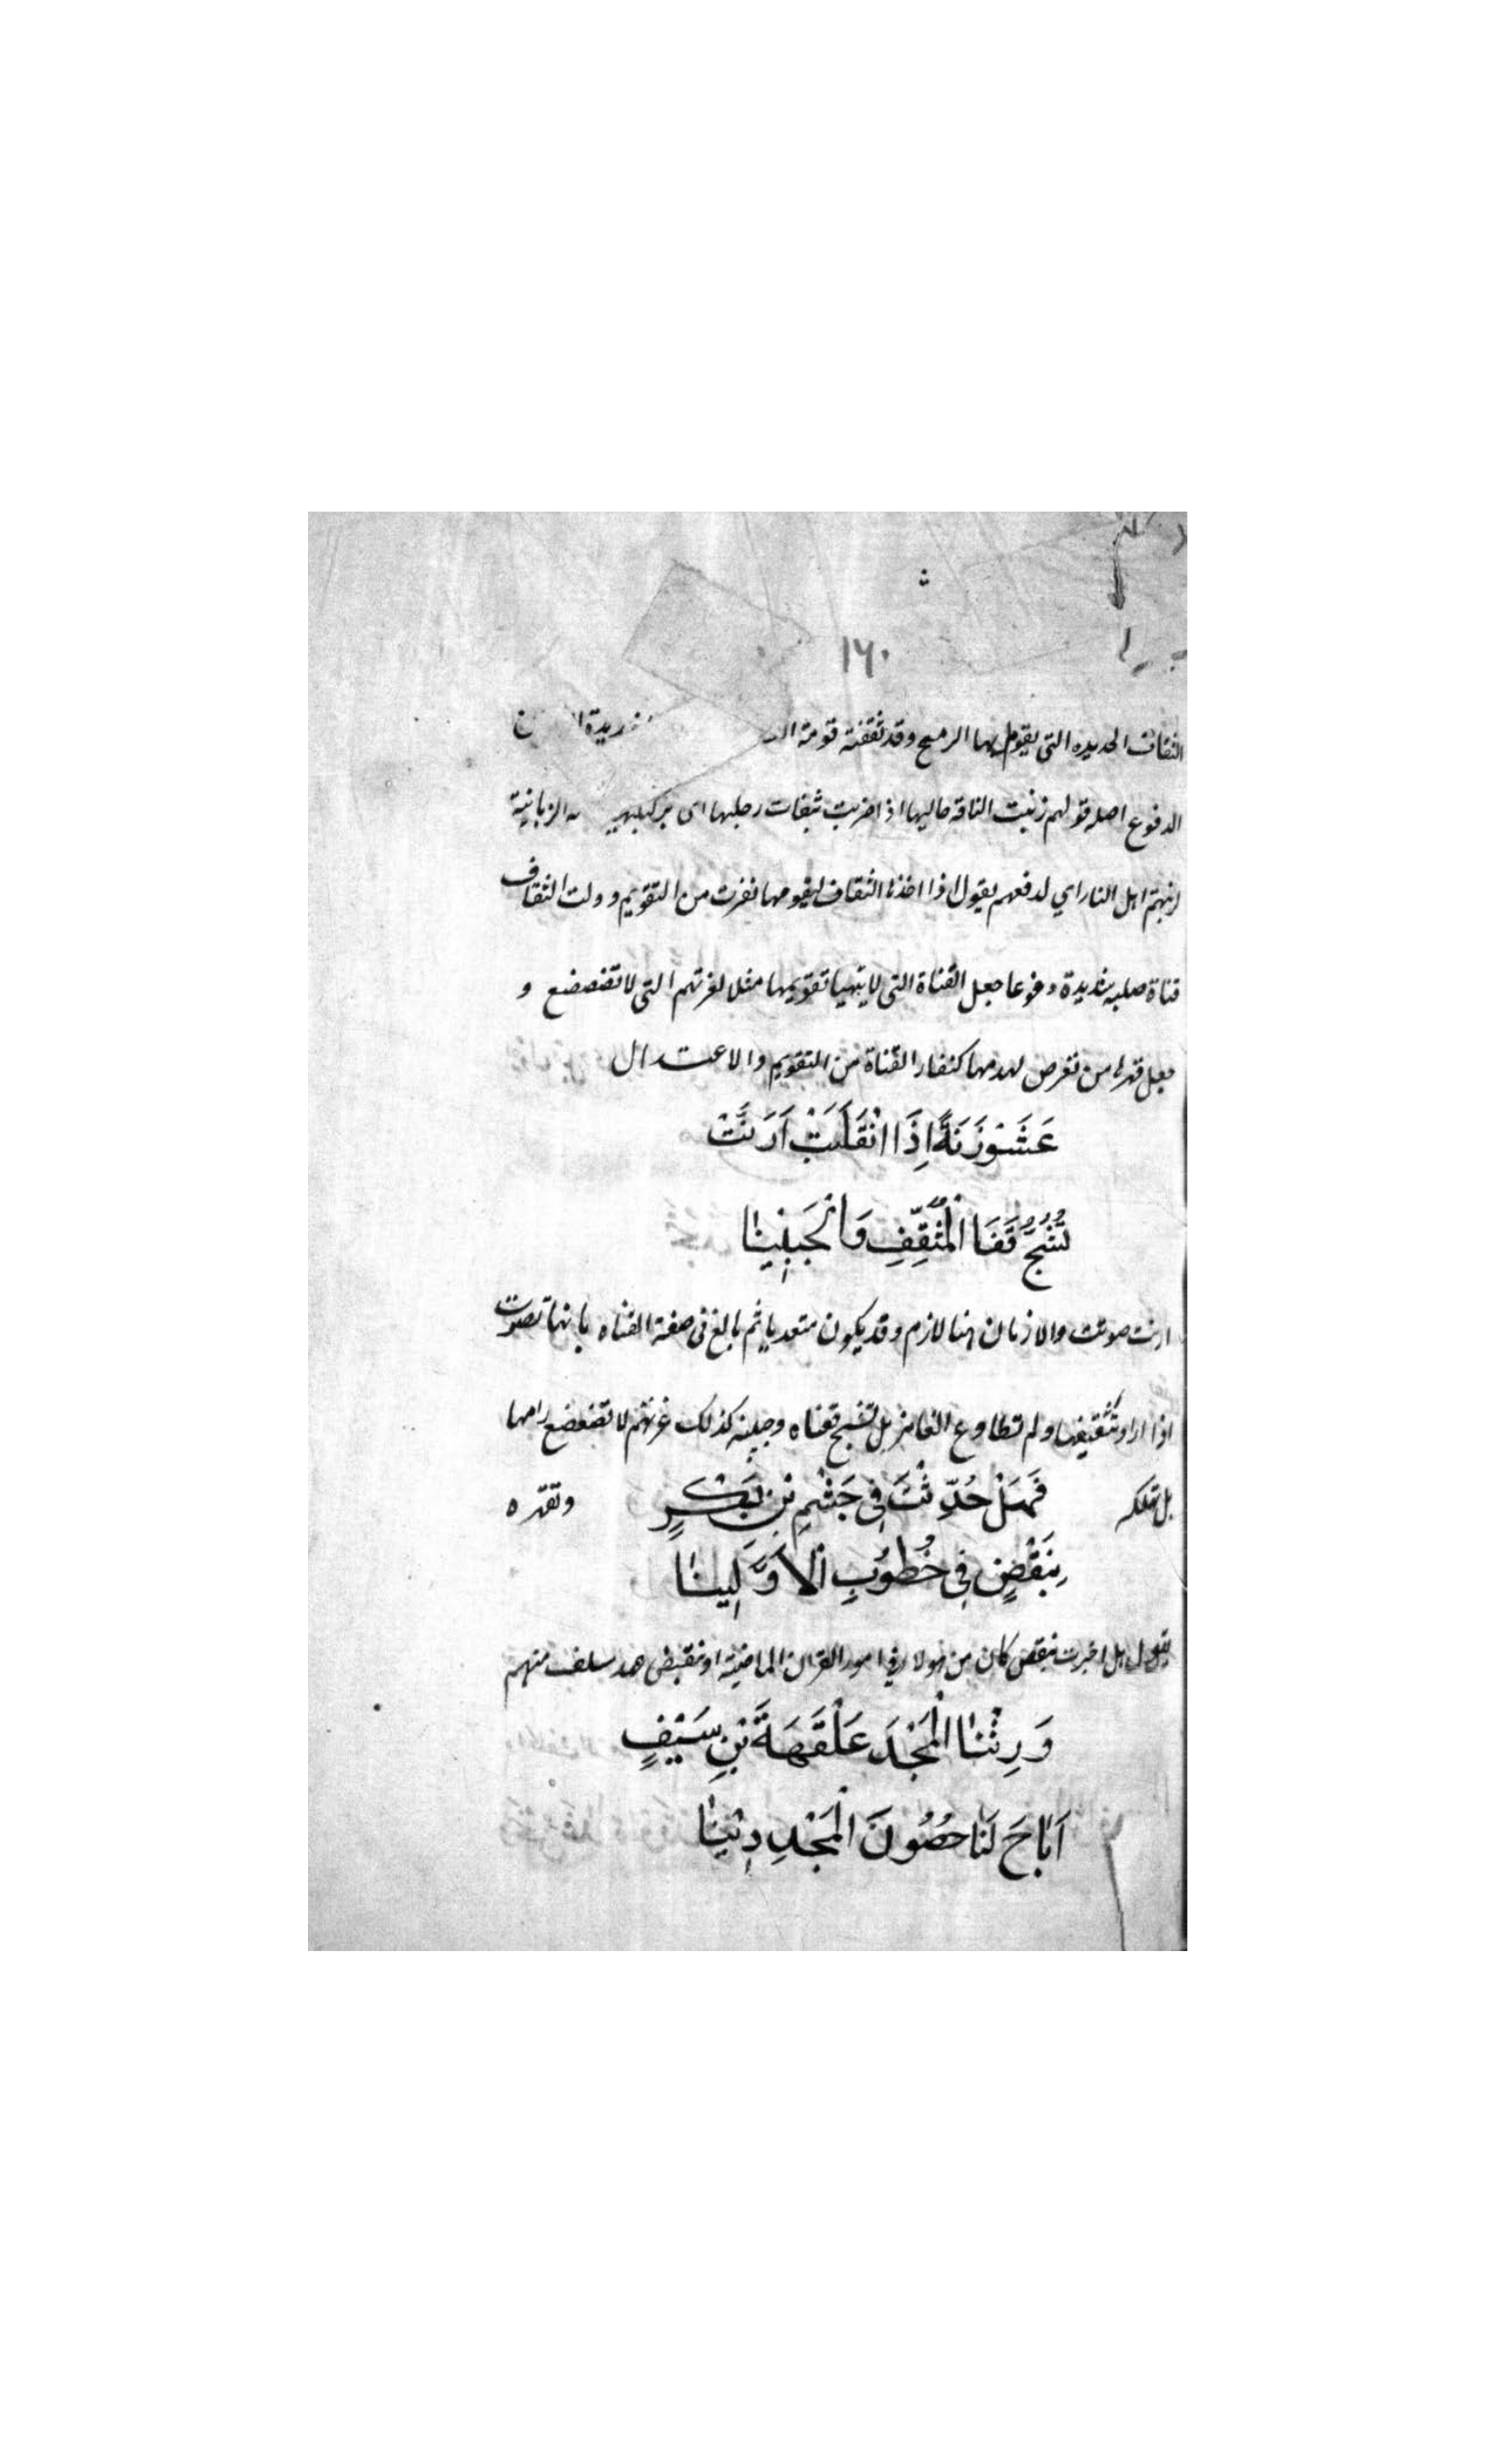 ١٦٠
الثقاف الحديده التى يقوم بها الرمح وقد ثقفته قومته
الدفوع اصله قولهم زبنت الناقه حالبها اذا ضربت ثبفات رجليها اى بركبتيها الزبانية
لزبنهم اهل النار اي لدفعهم يقول اذا اخذها الثقاف ليقومها نفرت من التقويم وولت الثقاف
قناة صلبه شديدة دفوعا جعل القناة التى لا يتهيا تقويمها مثلا لعزتهم التى لا تضعضع و
جعل قهرها من تعرض لهدمها كنفار القناة من التقويم والاعتدال
عَشَوْزَنَةً اِذَا انْقَلَبَتْ اَرَنَّتْ
تَشُجُّ قَفَا الْمُثَقِّفِ وَالْجَبِيْنَا
ارنت صوتت والارنان هنا لازم وقد يكون متعديا ثم بالغ فى صفة القناه بانها تصوت
اذا ارادو تثقيفها ولم تطاوع الغامز بل تشج قفاه وجبينه كذلك عزتهم لا تضعضع رامها
بل تهلكه وتقهره
فَهَلْ حُدِّثْتَ فِى جَشْمِ بْنِ بَكْرٍ
بِنَقْضٍ فِى خُطُوْبِ الْاَوَّلِيْنَا
يقول هل اخبرت بنقض كان من هولاء فى امور القران الماضية او نقيض عهد سلف منهم
وَرِثْنَا الْمَجْدَ عَلْقَمَةَ بْنِ سَيْفٍ
اَبَاحَ لَنَا حُصُوْنَ الْمَجْدِ دِيْنَا